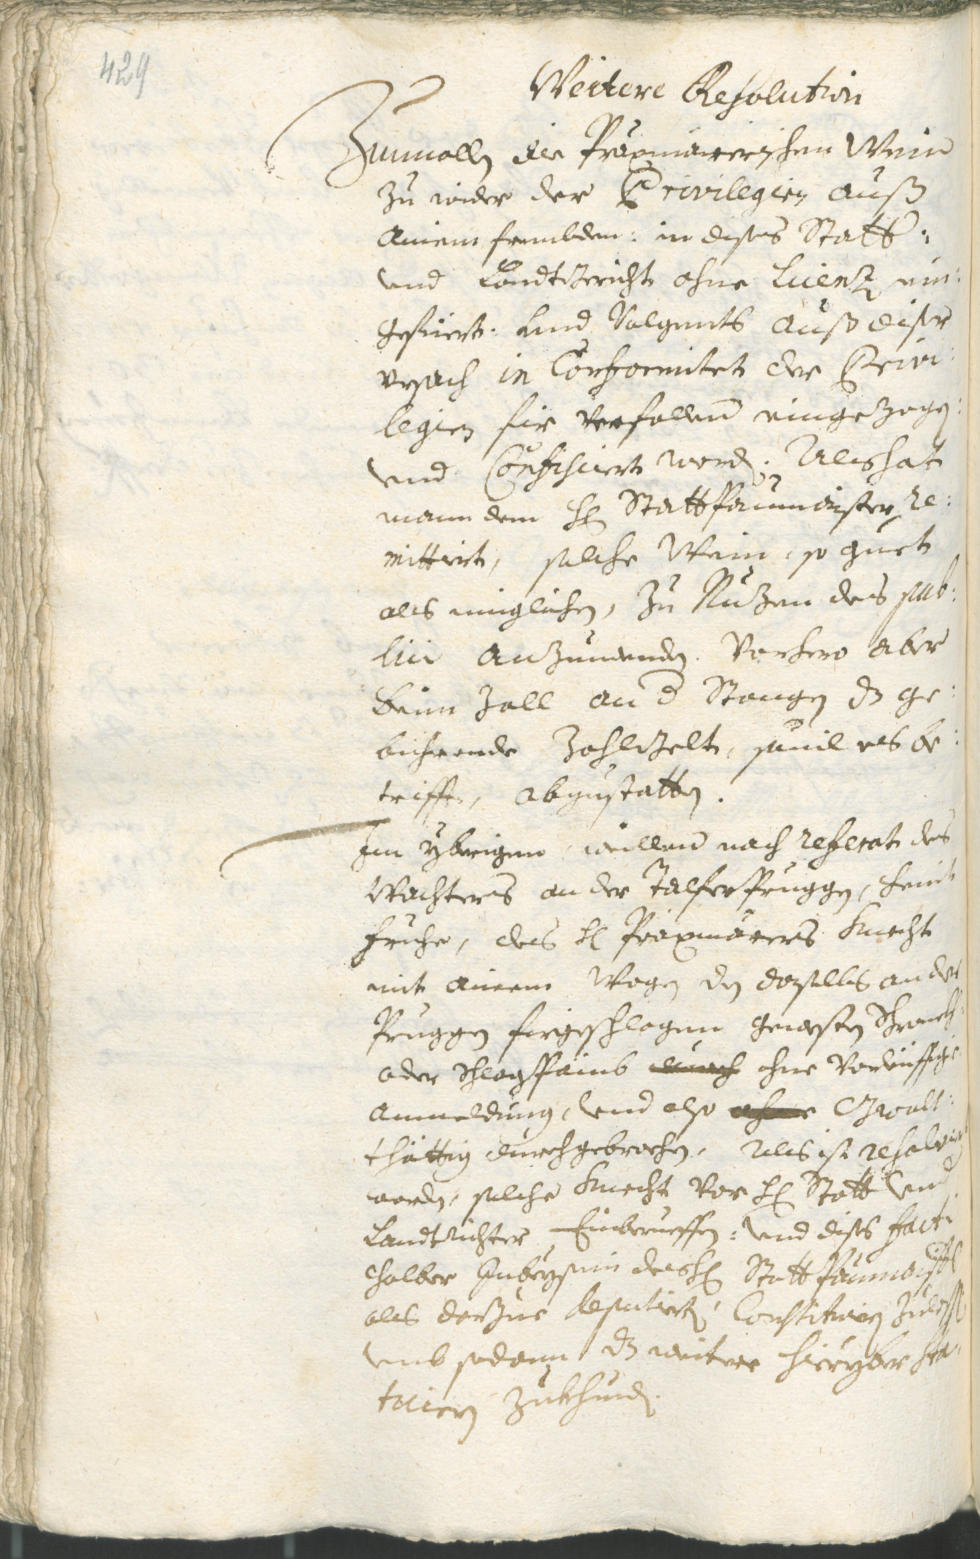 429
Weitere Resolution
Zumalln die Praxmarerischen Wein
zu wider der Privilegien auß
ainem frembden: in dises Statt:
und Landtgericht ohne Licenz ein:
gefüert: und volgents auß diser
ursach in Conformitet der Privi:
legien für verfallen eingezogen:
und Confisciert worden; Als hat
mann dem H: Stattpaumaister re:
mittiert, solche Wein, so guet
als miglichen, zu Nuzen des pub:
lici anzuwenden. Vorhero aber
beim Zoll an d Stangen dz ge:
bichrende Zohlgelt, sovil es be:
trifft, abzustatten.
Im yberigen, weillen nach referat des
Wachters an der Talferpruggen, heint
fruehe, des H: Praxmarers Knecht
mit ainem Wagen den daselbs an der
Pruggen firgeschlagnen gewesten Schranckh
oder Schlagpaumb durch ohne vorleiffige
Anmeldung, und also ohne Gwalt:
thättig durchgebrochen, Als ist resolviert
worden, solche Knecht vor H: Statt und
Landtrichter Einberueffen: und dises facti
halber Inbeysein des H: Stattpaumaister
als darzue deputierten, Constituiern zulassen
umb sodann dz weitere hieryber sta:
tuiern zukhinden.